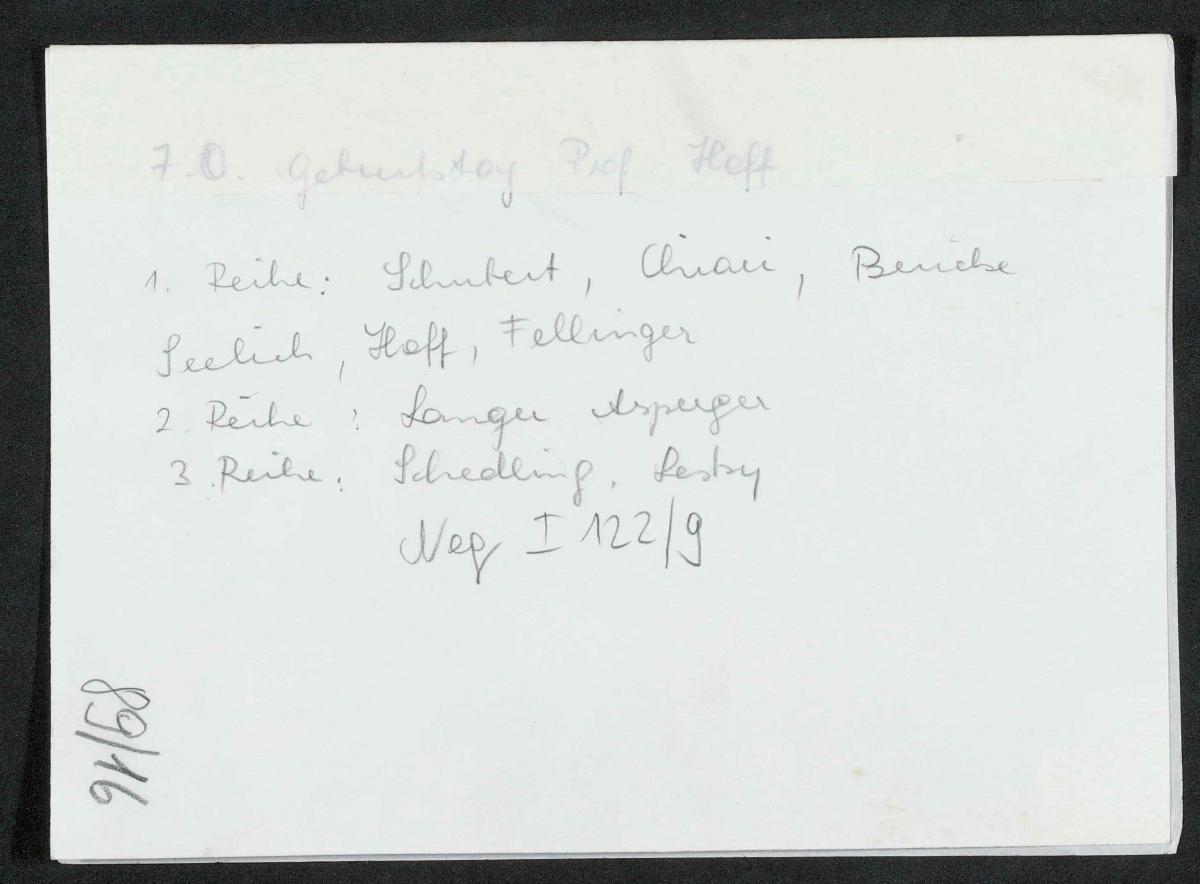 70. Geburtstag Prof Hoff
1. Reihe: Schubert, Chiari, Bericke
Seelich, Hoff, Fellinger
2. Reihe: Langer Asperger
3. Reihe: Schedling, Lesky
Neg I 122/9
91/68